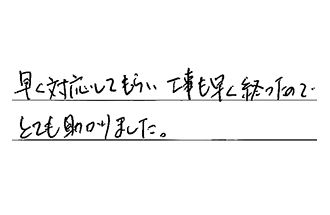 早く対応してもらい 工事も早く終ったので
とても助かりました。